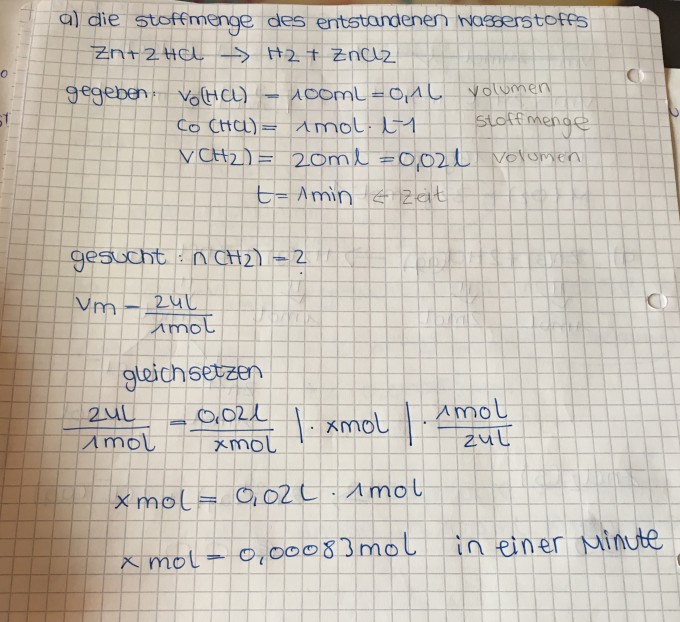 a) die stoffmenge des entstandenen wasserstoffs
Zn + 2 HCl → H2 + ZnCl2
gegeben: V0(HCl) = 100ml = 0,1L volumen
C0 (HCl) = 1mol · l-1 stoffmenge
V(H2) = 20ml = 0,02l volumen
t = 1min ← zeit
gesucht : n(H2) = ?
Vm = 24L / 1mol
gleichsetzen
24L / 1mol = 0,02l / xmol | · xmol | · 1mol / 24L
x mol = 0,02L · 1mol
x mol = 0,00083mol in einer Minute